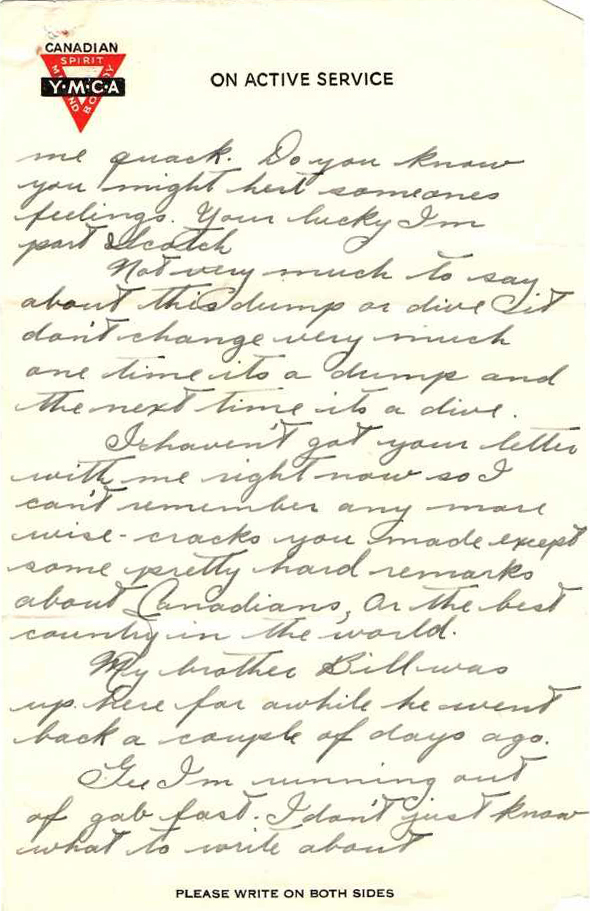 CANADIAN
SPIRIT
MIND Y·M·C·A BODY
ON ACTIVE SERVICE
me quack. Do you know
you might hert someones
feelings. Your lucky I'm
part Scotch
Not very much to say
about this dump or dive it
don't change very much
one time its a dump and
the next time its a dive.
I haven't got your letter
with me right now so I
can't remember any more
wise-cracks you made except
some pretty hard remarks
about Canadians, or the best
country in the world.
My brother Bill was
up here for awhile he went
back a couple of days ago.
Gee I'm running out
of gab fast. I don't just know
what to write about
PLEASE WRITE ON BOTH SIDES